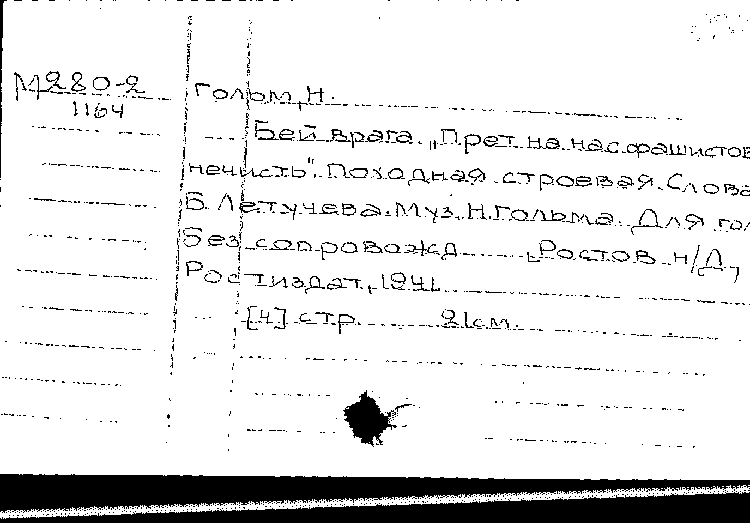 М280-2
1164
Гольм, Н.
Бей врага. „Прет на нас фашистов
нечисть". Походная строевая. Слова
Б. Летучева. Муз. Н. Гольма. Для гол
без сопровожд „Ростов н/Д,
Ростиздат, 1941
[4] стр. 21 см.